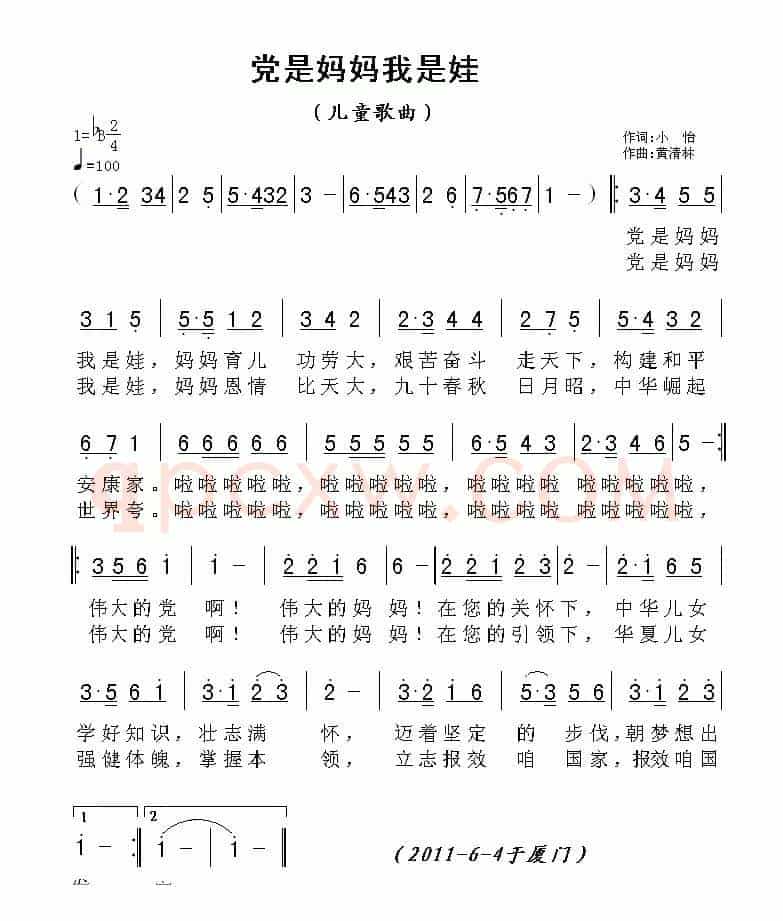 党是妈妈我是娃
（儿童歌曲）
1=♭B 2/4
♩=100
作词:小 怡
作曲:黄清林
（1·2 34|2 5|5·432|3 -|6·543|2 6|7·567|1 -）|:3·4 5 5|
党是妈妈
党是妈妈
3 1 5|5·5 1 2|3 4 2|2·3 4 4|2 7 5|5·4 3 2|
我是娃，妈妈育儿 功劳大，艰苦奋斗 走天下，构建和平
我是娃，妈妈恩情 比天大，九十春秋 日月昭，中华崛起
6 7 1|6 6 6 6 6|5 5 5 5 5|6·5 4 3|2·3 4 6|5 -:|
安康家。啦啦啦啦啦，啦啦啦啦啦，啦啦啦啦 啦啦啦啦啦，
世界夸。啦啦啦啦啦，啦啦啦啦啦，啦啦啦啦 啦啦啦啦啦，
qpcxw.COM
|:3 5 6 1|1 -|2 2 1 6|6 -|2 2 1 2 3|2 -|2·1 6 5|
伟大的党 啊！ 伟大的妈 妈！在您的关怀下，中华儿女
伟大的党 啊！ 伟大的妈 妈！在您的引领下，华夏儿女
3·5 6 1|3·1 2 3|2 -|3·2 1 6|5·3 5 6|3·2 3 1|
学好知识，壮志满 怀， 迈着坚定 的 步伐，朝梦想出
强健体魄，掌握本 领， 立志报效 咱 国家，报效咱国
1 2
1 -:|1 -|1 -|
（2011-6-4于厦门）